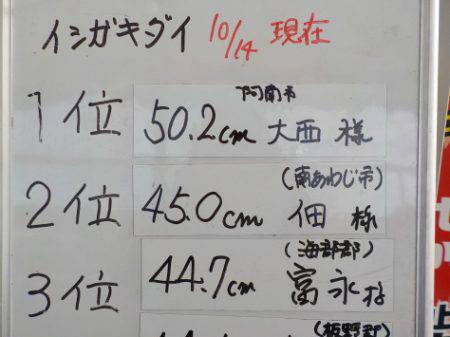 イシガキダイ 10/14 現在
阿南市
1位 50.2cm 大西 様
(南あわじ市)
2位 45.0cm 佃 様
(海部郡)
3位 44.7cm 富永 様
(板野郡)